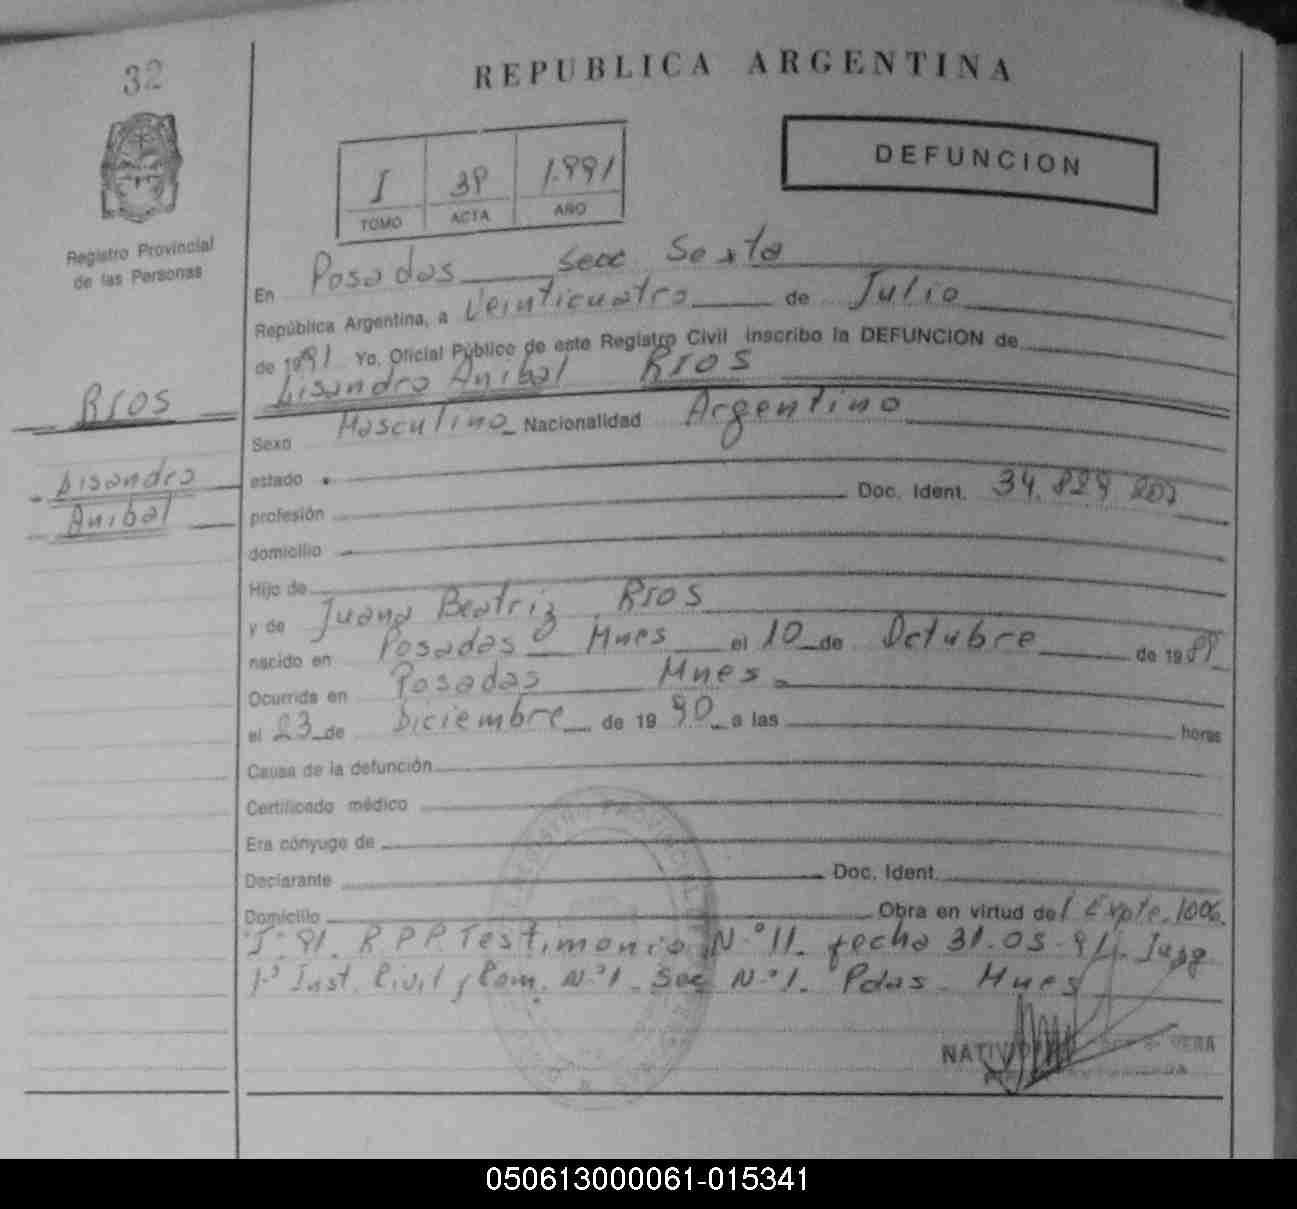 32
REPUBLICA ARGENTINA
Registro Provincial
de las Personas
I
1.991
TOMO ACTA AÑO
DEFUNCION
En Posadas Secc Sexta
República Argentina, a Veinticuatro de Julio
de 1991 Yo, Oficial Público de este Registro Civil inscribo la DEFUNCION de
Lisandro Anibal RIOS
RIOS
Lisandro
Anibal
Sexo Masculino Nacionalidad Argentino
estado
profesión Doc. Ident. 34.829
domicilio
Hijo de
y de Juana Beatriz RIOS
nacido en Posadas Mnes el 10 de Octubre de 19
Ocurrida en Posadas Mnes
el 23 de Diciembre de 1990 a las horas
Causa de la defunción
Certificado médico
Era cónyuge de
Declarante Doc. Ident.
Domicilio Obra en virtud del Expte. 1006
R.P.P. Testimonio N.º 11. fecha 31.05.91. Juzg
1.º Inst. Civil y Com. N.º 1. Sec N.º 1. Pdas. Mnes
VERA
050613000061-015341